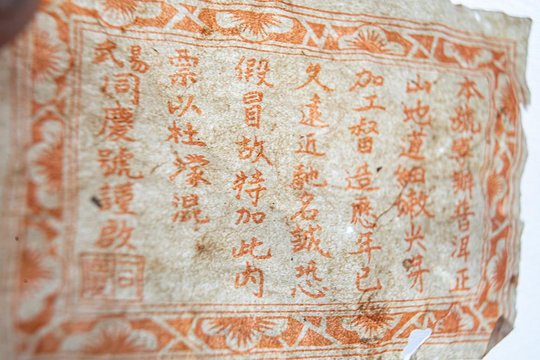 本號專辦普洱正
山地道細嫩尖芽
加工督造應年已
久遠近馳名誠恐
假冒故特加此內
票以杜濛混
易武同慶號謹啟